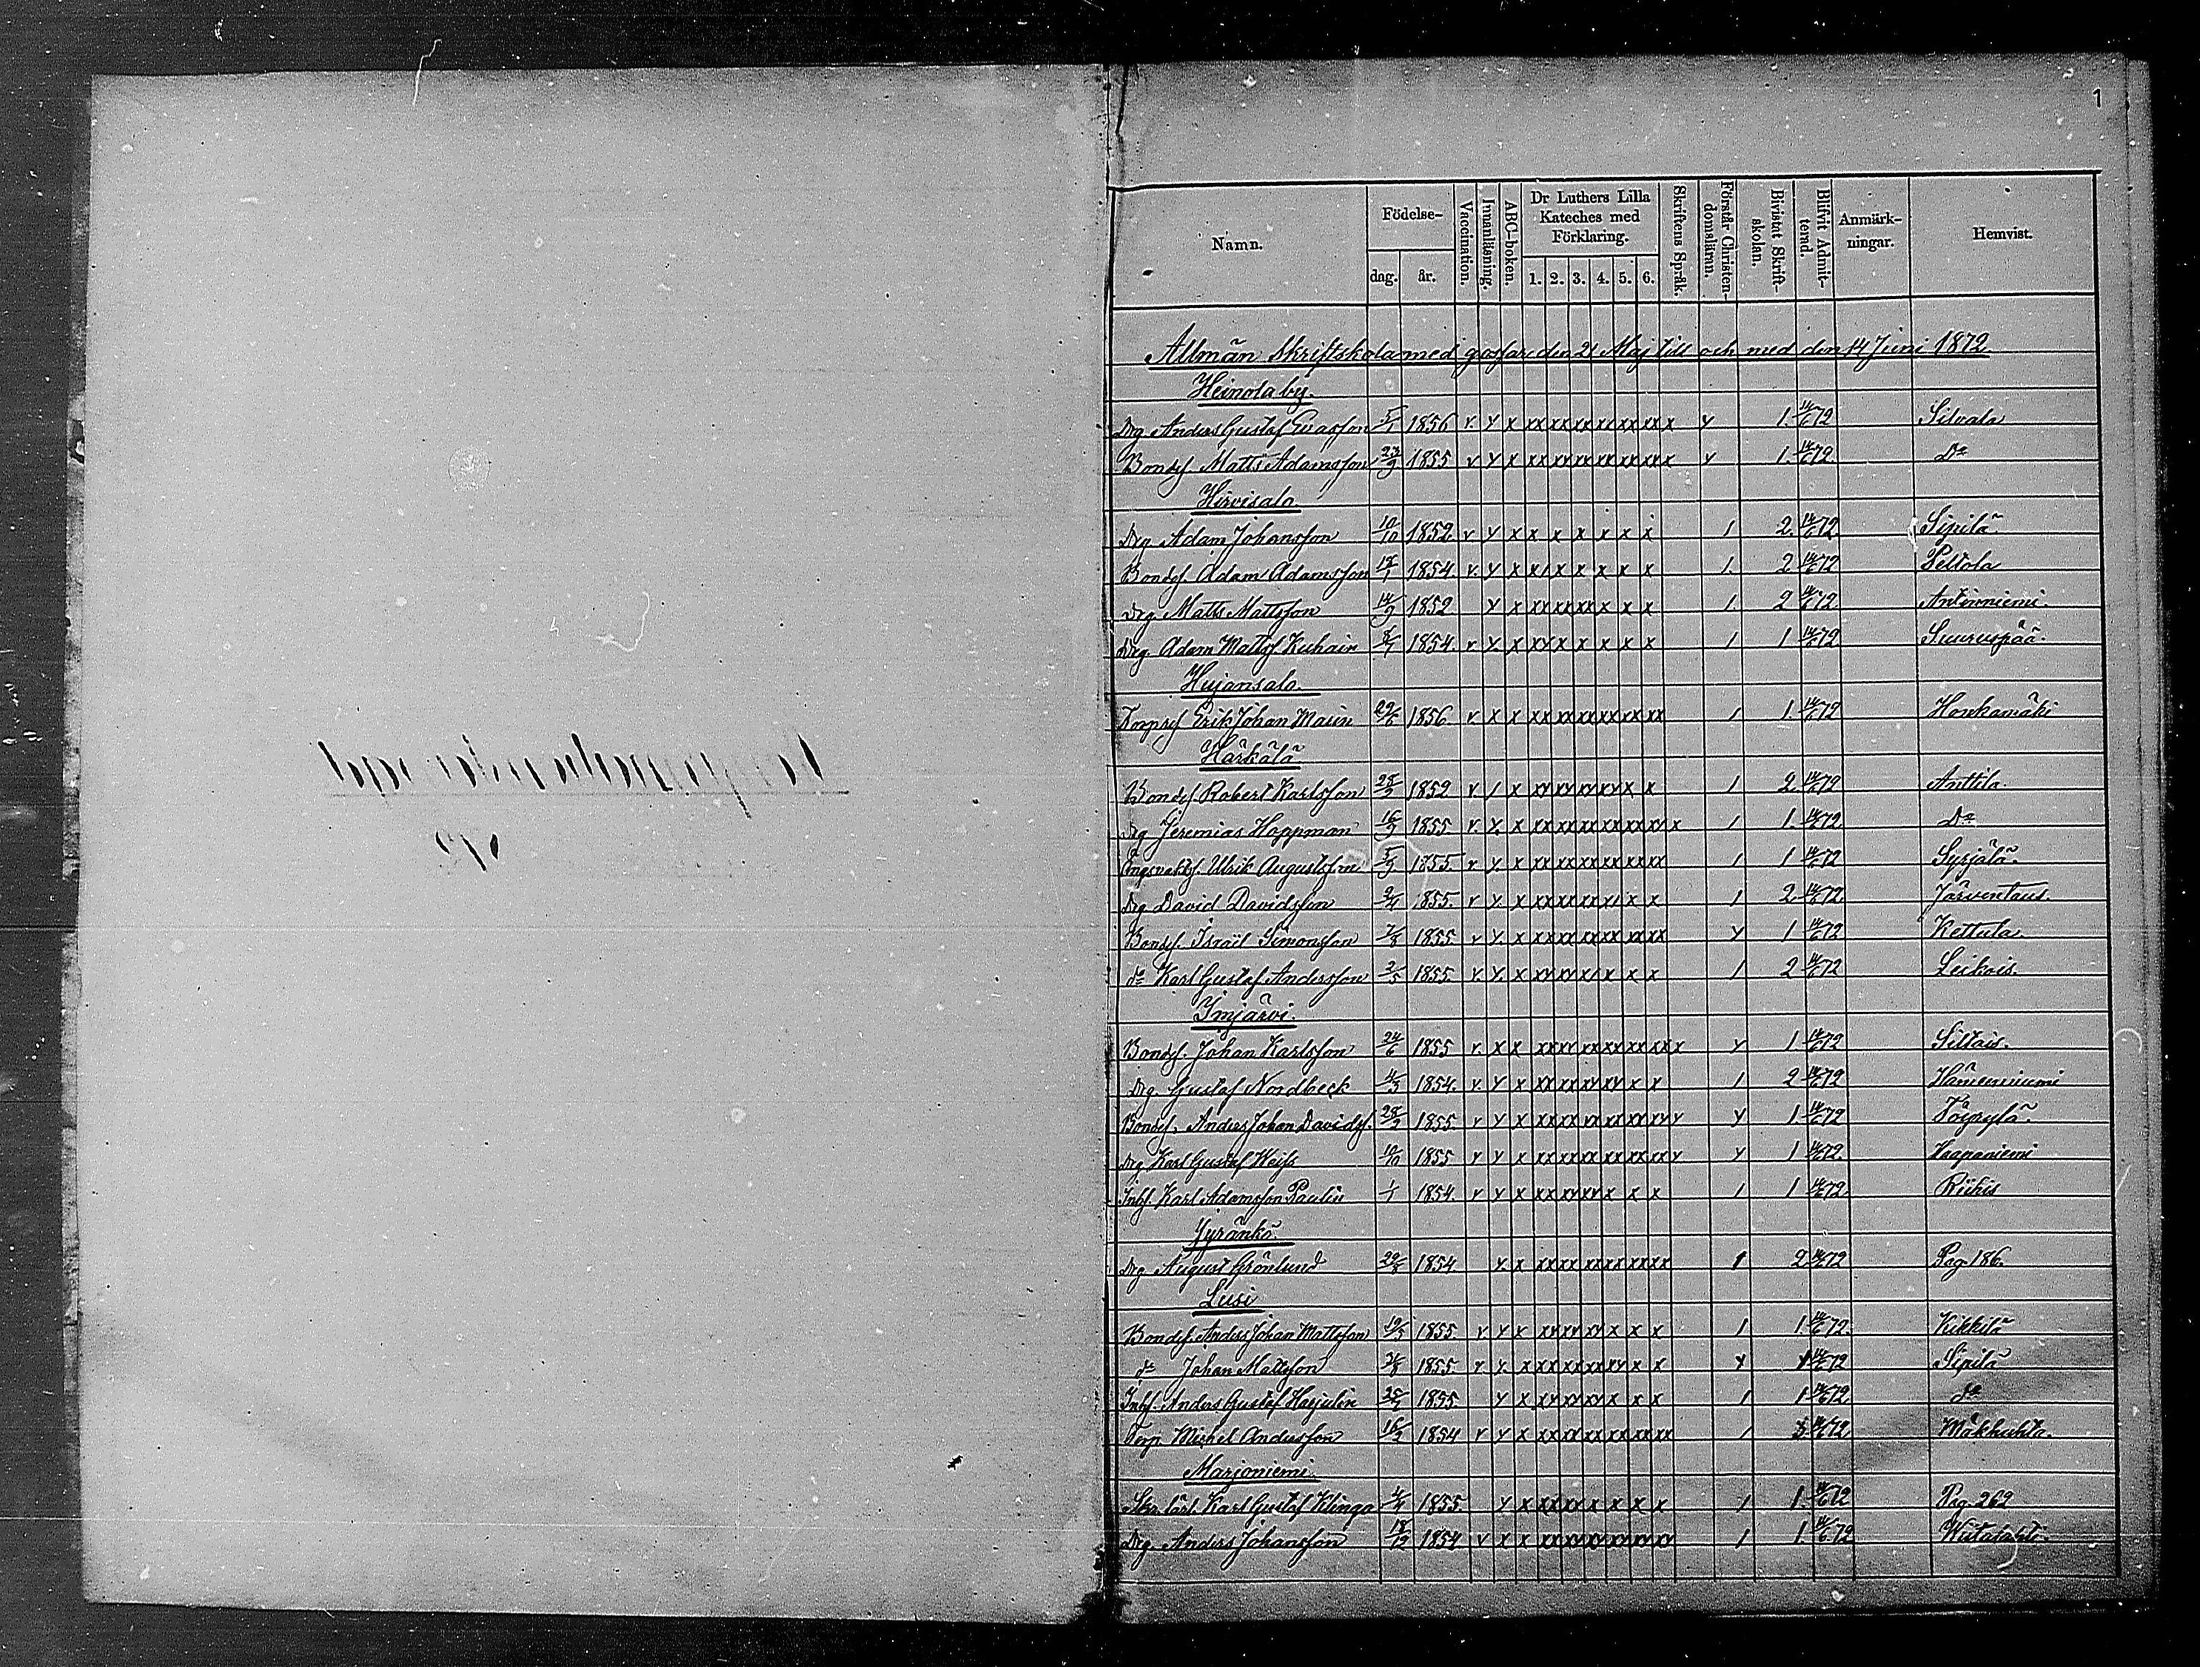 1
Namn. Födelse- dag. år. Vaccination. Innanläsning. ABC-boken. Dr Luthers Lilla Kateches med Förklaring. 1. 2. 3. 4. 5. 6. Skriftens Språk. Förstår Christendomsläran. Bivistat Skriftskolan. Blifvit Admitterad. Anmärkningar. Hemvist.
Allmän Skriftskola med gossar den 21 Maj till och med den 14 Juni 1872
Heinola by.
Drg Anders Gustaf Evasson 5/1 1856 v. y x xx xx xx xx xx xx x y 1. 14/6 72 Silvala
Bondes. Matts Adamsson 23/9 1855 v y x xx xx xx xx xx xx x y 1. 14/6 72 Do
Hirvisalo.
Drg Adam Johansson 10/10 1852 v y x x x x x x x 1 2. 14/6 72. Sipilä
Bondes. Adam Adamsson 18/1 1854. v. y x x x x x x 1. 2 14/6 72 Peltola
Drg. Matts Mattsson 14/9 1852 y x xx xx xx x x x 1. 2 14/6 72 Antinniemi.
Drg. Adam Mattss. Kuhain 8/7 1854. v y. x xx x x x x x 1 1 14/6 72. Suuruspää.
Hujansalo.
Torpss Erik Johan Main 29/6 1856. v x x xx xx xx xx xx xx 1 1. 14/6 72 Honkamäki
Härkälä
Bondes. Robert Karlsson 28/2 1852 v 1 x xx xx xx xx x x 1 2 14/6 72 Anttila.
Drg Jeremias Hoppman 16/9 1855 v. y. x xx xx xx xx xx xx x 1 1. 14/6 72 Do
Ulrik Augustsson 5/9 1855. v y. x xx xx xx xx xx xx 1 1 14/6 72 Syrjälä.
Drg David Davidsson 2/4 1855. v y. x xx xx xx xx x x 1 2 14/6 72. Järventaus.
Bondes. Israël Simonsson 7/8 1855 v y. x xx xx xx xx xx xx y 1 14/6 72 Kettula
do Karl Gustaf Andersson 3/5 1855. v. y. x xx xx x x x x 1 2 14/6 72 Leikois.
Imjärvi.
Bondes. Johan Karlsson 24/6 1855 v. x x xx xx xx xx xx xx x y 1. 14/6 72 Siltais.
Drg. Gustaf Nordbeck 4/3 1854. v. y x xx xx xx xx x x 1 2 14/6 72 Hämeenniemi
Bondes. Anders Johan Davidss. 28/2 1855. v y x xx xx xx xx xx xx y y 1. 14/6 72 Töyrylä.
Drg Karl Gustaf Weiss 10/10 1855 v y x xx xx xx xx xx xx y y 1 14/6 72. Haapaniemi
Inhs. Karl Adamsson Paulin 1/1 1854. v y x xx xx xx x x x 1 1 14/6 72. Riihis
Jyränkö.
Drg August Grönlund 29/8 1854 y. x xx xx xx xx xx xx 1 2 14/6 72 Pag. 186.
Lusi
Bondes. Anders Johan Mattsson 19/5 1855. v y x xx xx xx x x x 1 1. 14/6 72. Kikkilä
do Johan Mattsson 1855. v y. x xx xx xx xx x x y 14/6 72 Sipilä
Inhs. Anders Gustaf Harjulin 25/1 1855 y x xx xx xx x x x 1 1 14/6 72 do
Torp. Mickel Andersson 16/2 1854 v y x xx xx xx xx xx xx 1 3 14/6 72 Mäkhuhta.
Marjoniemi.
Karl Gustaf Klinga 4/4 1855 y x xx xx x x x x 1 1. 14/6 72 Pag. 262
Drg. Anders Johansson 18/12 1854 v x x xx xx xx xx xx xx 1 1. 14/6 72